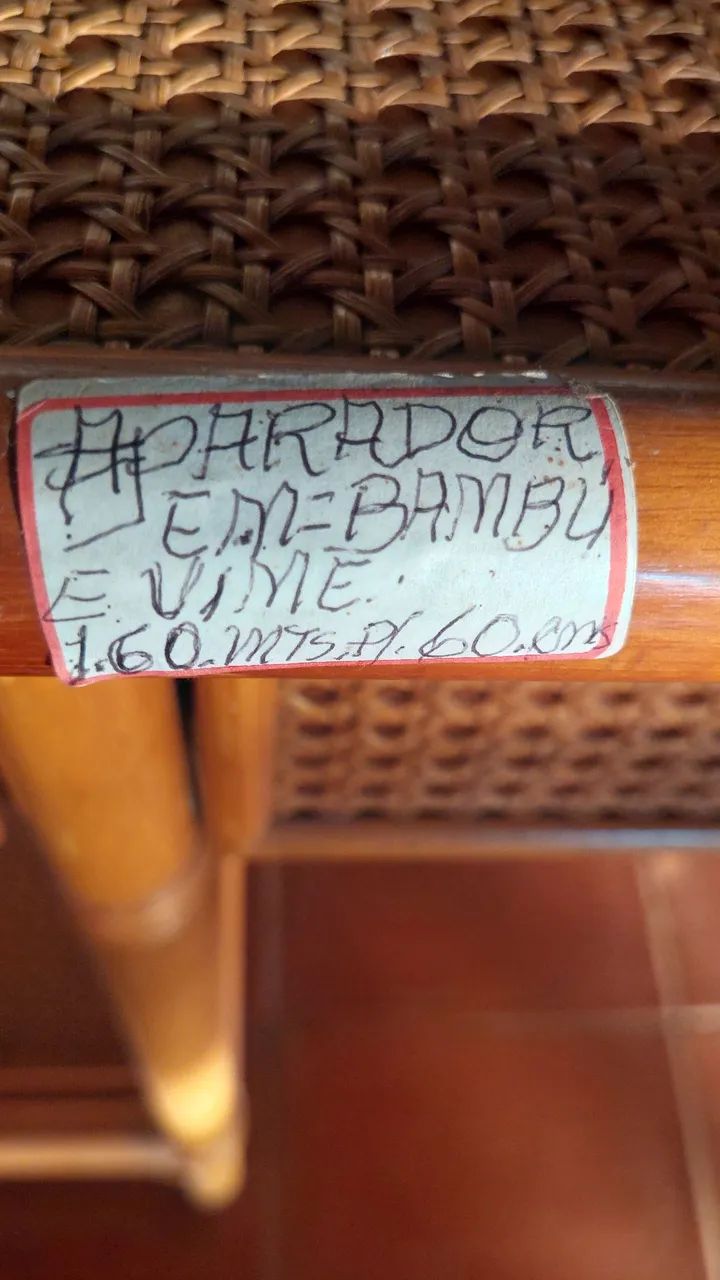 APARADOR
EM=BAMBÚ
E VIME.
1.60.MTS.P/.60.cms